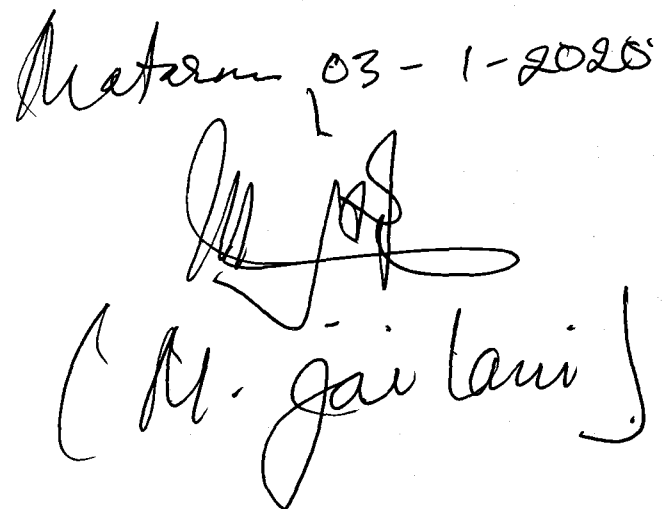 Mataram 03 - 1 - 2020
( M. Jailani )